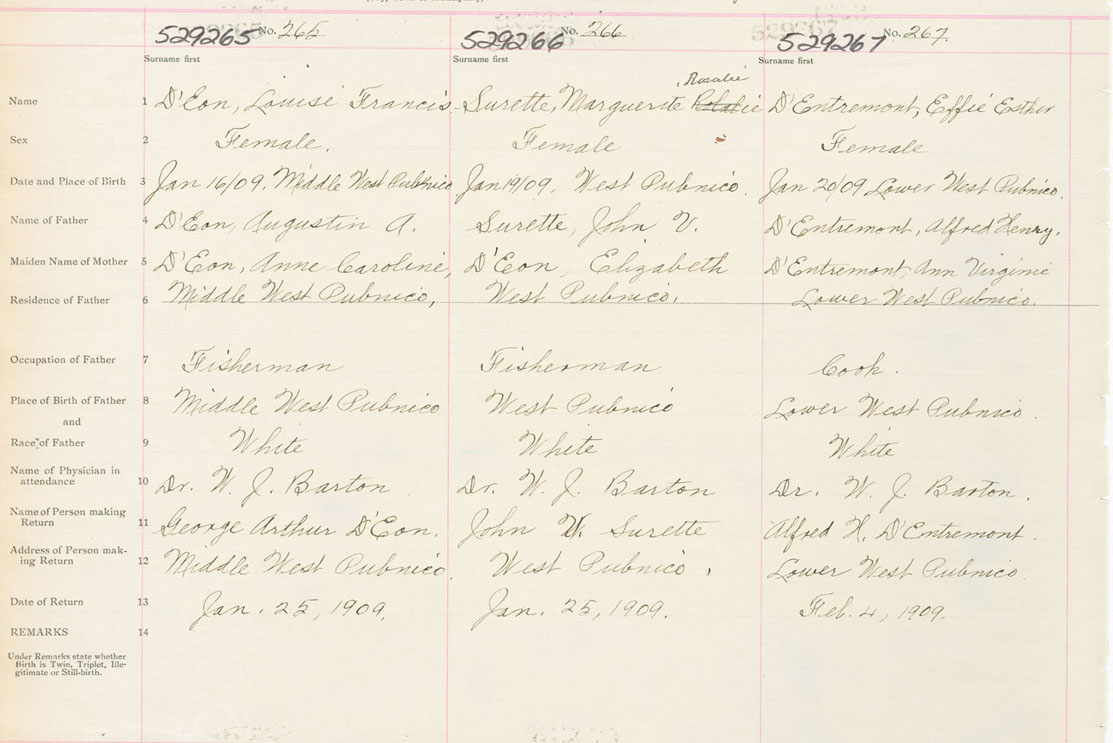 529265 No. 265 529266 No. 266 529267 No. 267
Surname first Surname first Surname first
Rosalie
Name 1 D'Eon, Louise Francis Surette, Marguerite D'Entremont, Effie Esther
Sex 2 Female. Female Female
Date and Place of Birth 3 Jan 16/09. Middle West Pubnico Jan 19/09. West Pubnico. Jan 20/09 Lower West Pubnico.
Name of Father 4 D'Eon, Augustin A. Surette, John V. D'Entremont, Alfred Henry.
Maiden Name of Mother 5 D'Eon, Anne Caroline, D'Eon, Elizabeth D'Entremont, Ann Virginie
Residence of Father 6 Middle West Pubnico, West Pubnico. Lower West Pubnico.
Occupation of Father 7 Fisherman Fisherman Cook.
Place of Birth of Father 8 Middle West Pubnico West Pubnico Lower West Pubnico.
and
Race of Father 9 White White White
Name of Physician in
attendance 10 Dr. W. J. Barton Dr. W. J. Barton Dr. W. J. Barton.
Name of Person making
Return 11 George Arthur D'Eon. John Surette Alfred H. D'Entremont.
Address of Person mak-
ing Return 12 Middle West Pubnico. West Pubnico, Lower West Pubnico.
Date of Return 13 Jan. 25, 1909. Jan. 25, 1909. Feb. 4, 1909.
REMARKS 14
Under Remarks state whether
Birth is Twin, Triplet, Ille-
gitimate or Still-birth.